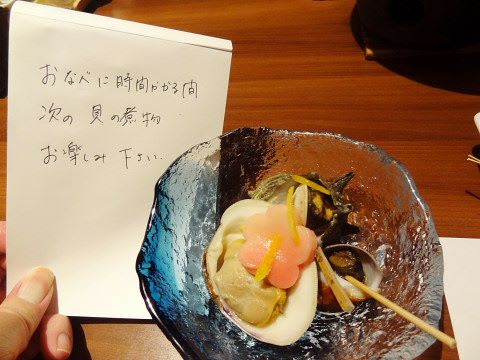 おなべに時間かかる間
次の 貝の煮物
お楽しみ 下さい